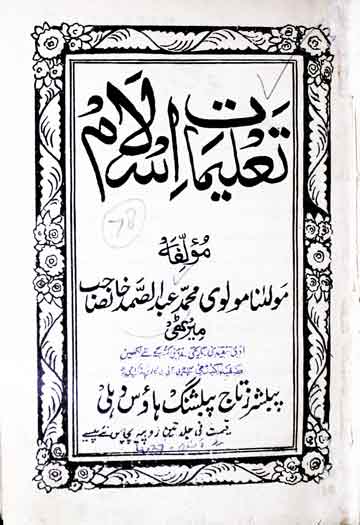 تعلیمات اسلام
78
مؤلفہ
مولٰنا مولوی محمد عبد الصمد خانصاحب
میرٹھی
پبلشرز تاج پبلشنگ ہاؤس دہلی
قیمت فی جلد تین روپیہ پچاس نئے پیسے